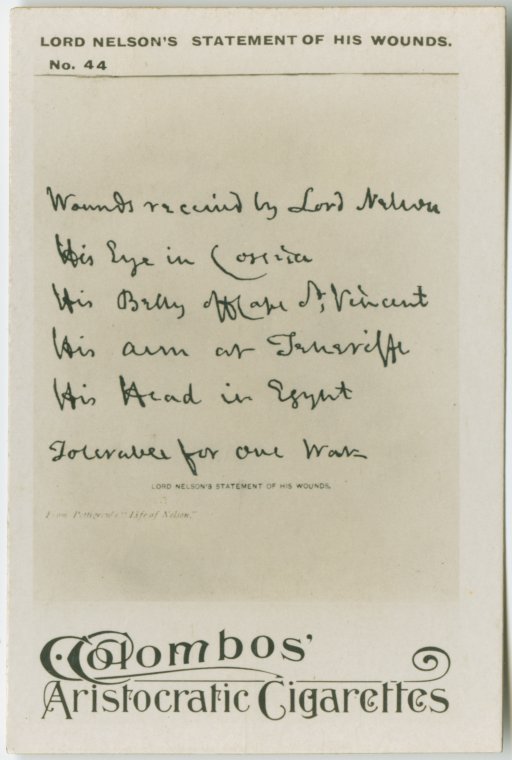 LORD NELSON'S STATEMENT OF HIS WOUNDS.
No. 44
Wounds received by Lord Nelson
His Eye in Corsica
His Belly off Cape St. Vincent
His arm at Teneriffe
His Head in Egypt
Tolerable for one War
LORD NELSON'S STATEMENT OF HIS WOUNDS.
From Pettigrew's "Life of Nelson."
Colombos'
Aristocratic Cigarettes